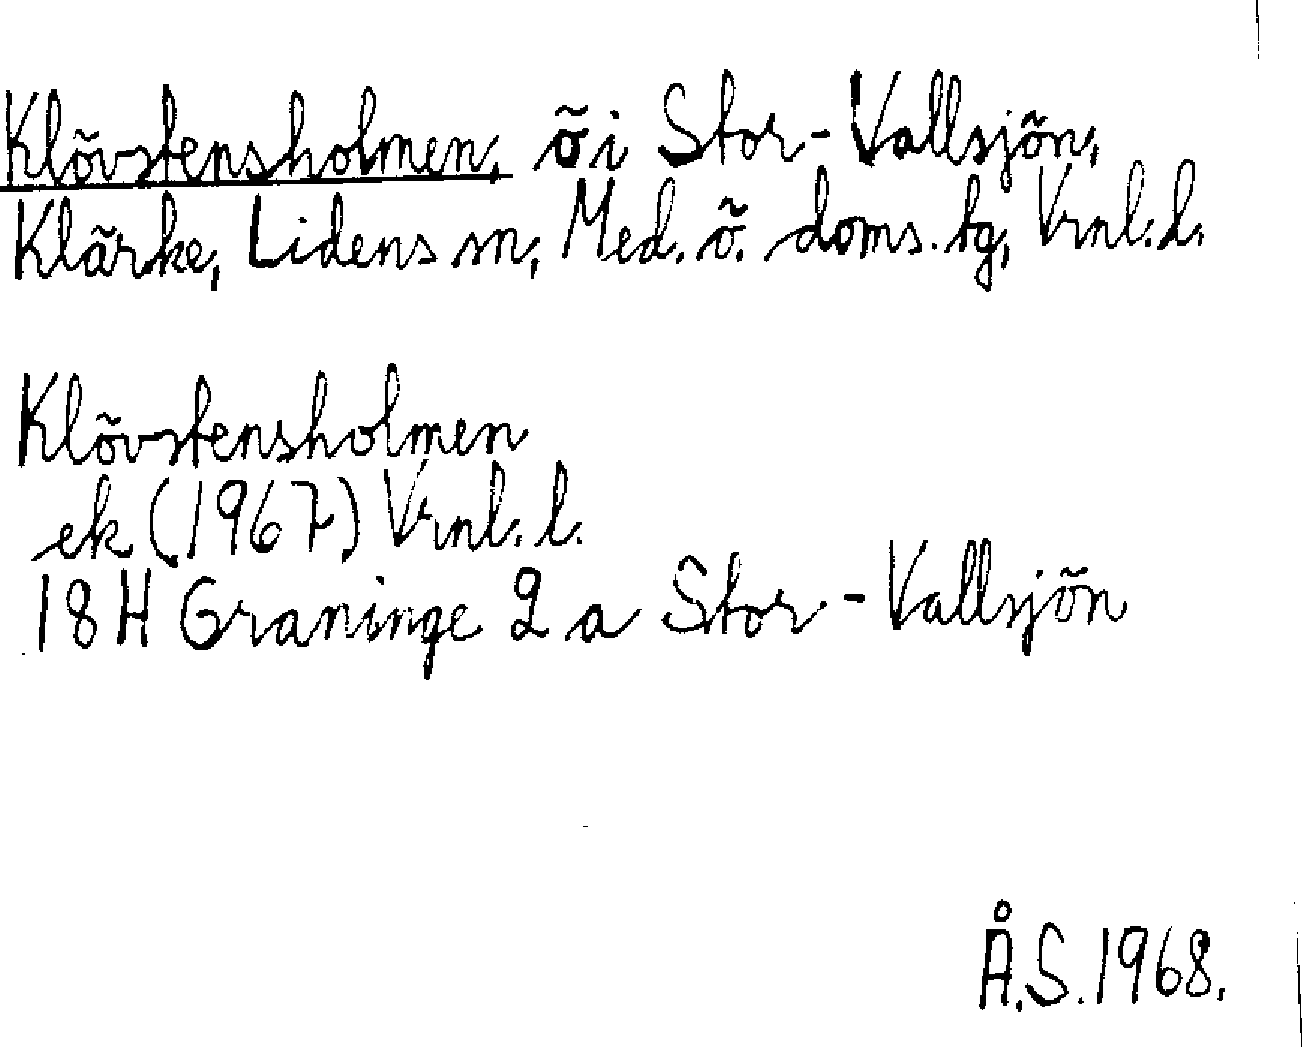 Klövstensholmen, ö i Stor-Vallsjön,
Klärke, Lidens sn, Med. ö. doms. tg, Vrnl. l.
Klövstensholmen
ek (1967) Vrnl. l.
18 H Graninge 2 a Stor-Vallsjön
Å.S. 1968.